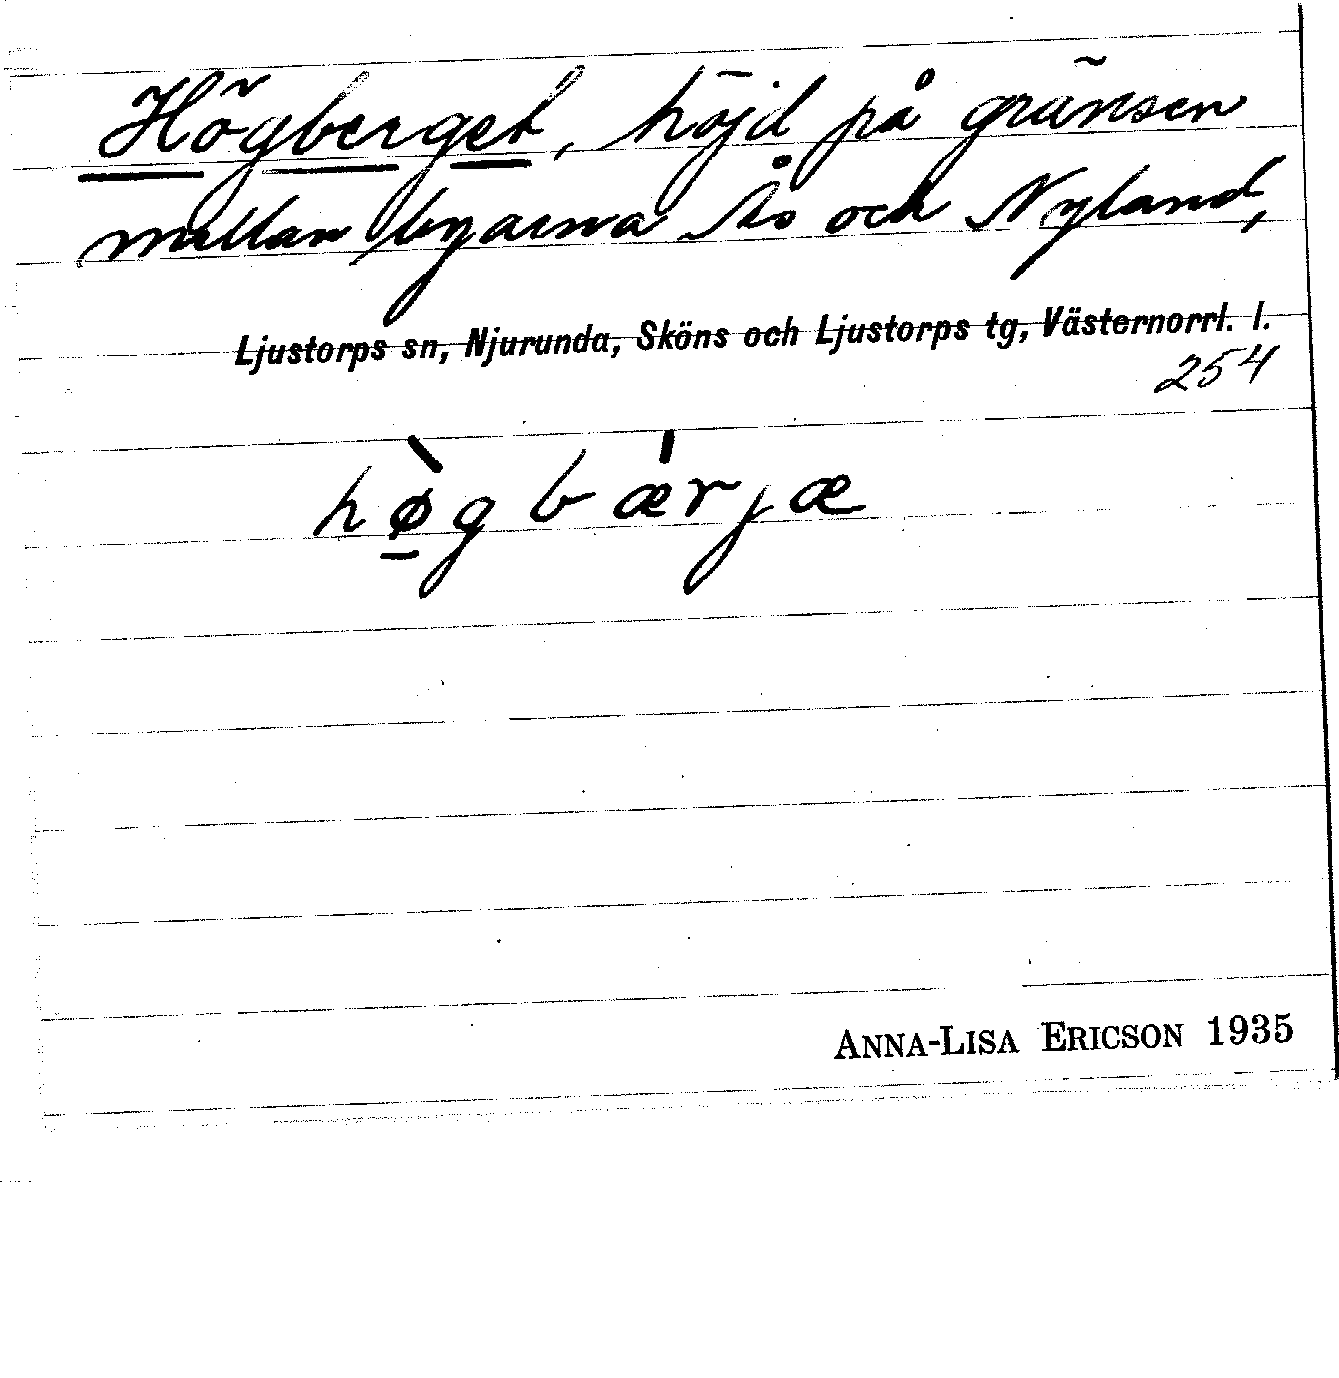 Högberget, höjd på gränsen
mellan byarna Ås och Nyland,
Ljustorps sn, Njurunda, Sköns och Ljustorps tg, Västernorrl. l.
254
hø̀gbǽrjæ
ANNA-LISA ERICSON 1935